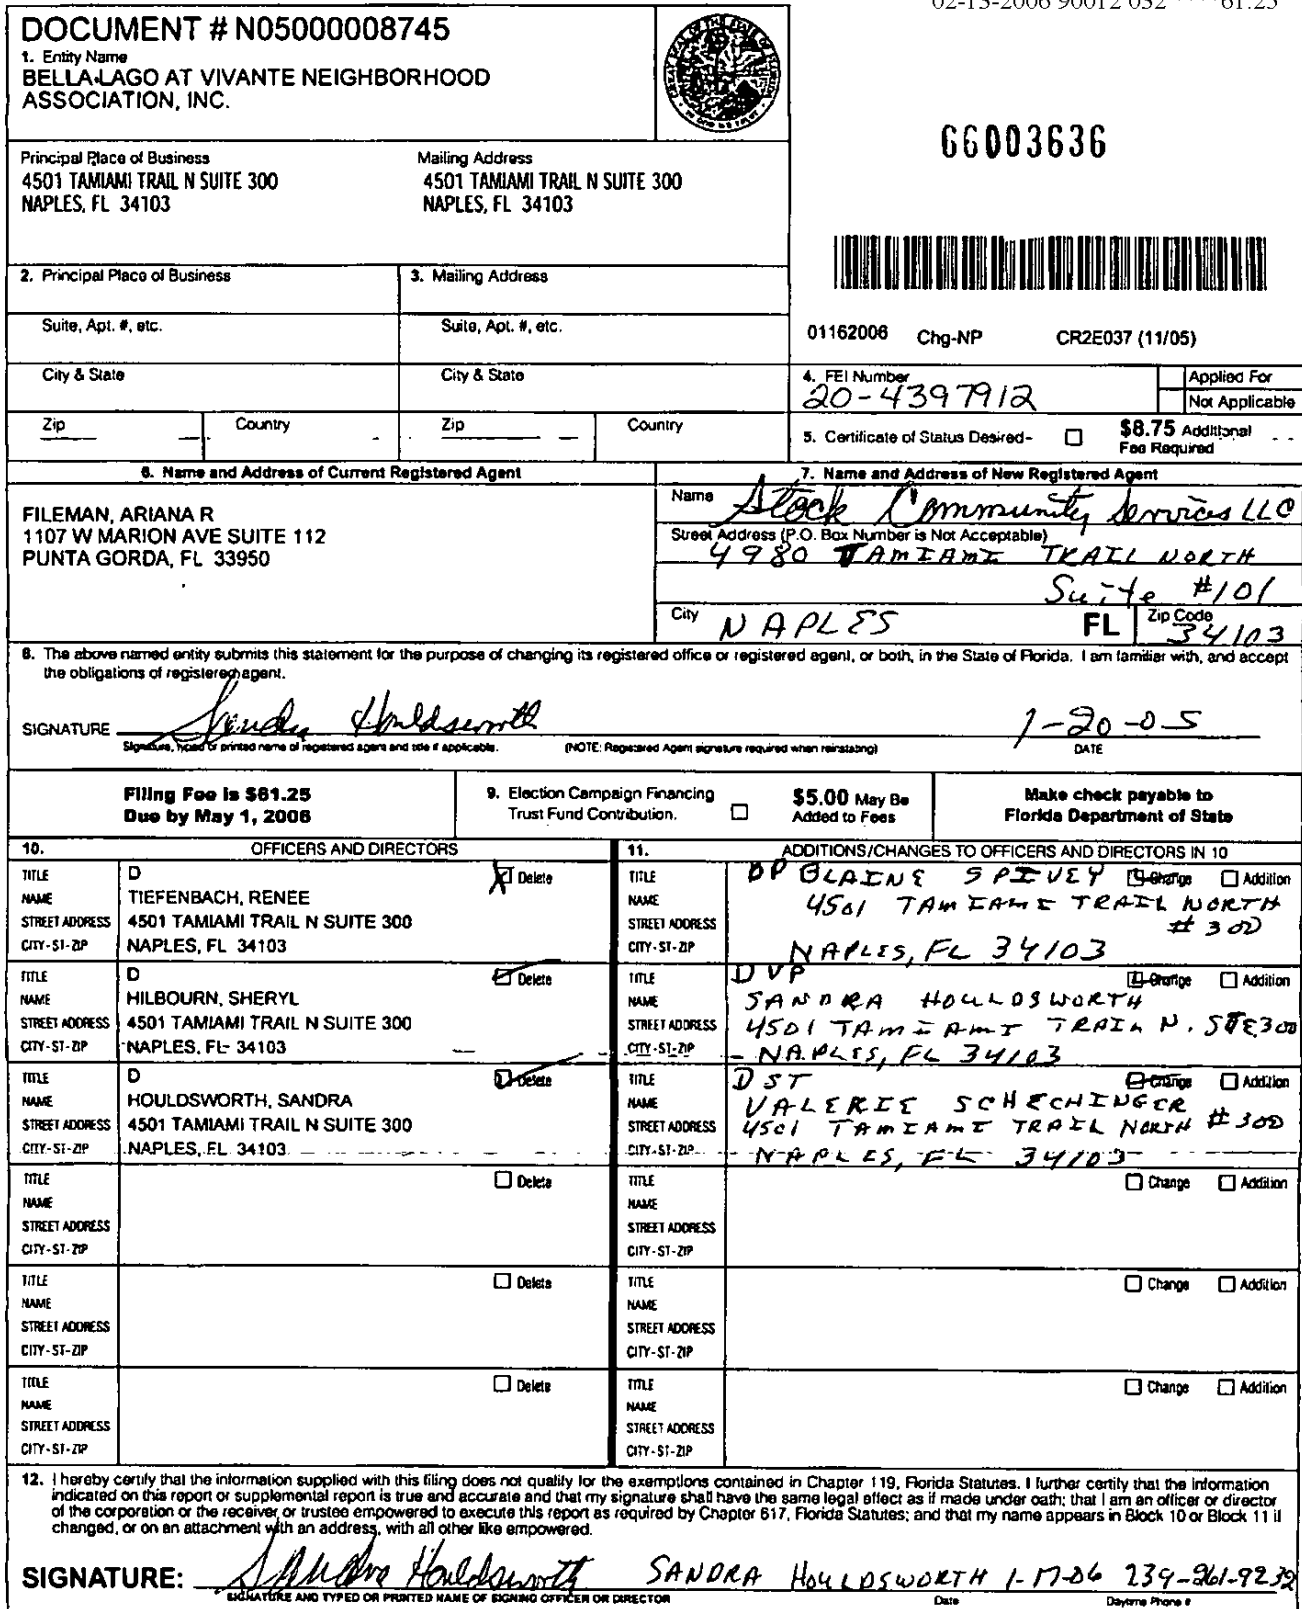 02-13-2006 90012 032 ****61.25
DOCUMENT # N05000008745
1. Entity Name
BELLA LAGO AT VIVANTE NEIGHBORHOOD
ASSOCIATION, INC.
66003636
Principal Place of Business
4501 TAMIAMI TRAIL N SUITE 300
NAPLES, FL 34103
Mailing Address
4501 TAMIAMI TRAIL N SUITE 300
NAPLES, FL 34103
2. Principal Place of Business
3. Mailing Address
Suite, Apt. #, etc.
Suite, Apt. #, etc.
City & State
City & State
Zip Country
Zip Country
01162006 Chg-NP CR2E037 (11/05)
4. FEI Number
20-4397912
Applied For
Not Applicable
5. Certificate of Status Desired
$8.75 Additional
Fee Required
6. Name and Address of Current Registered Agent
FILEMAN, ARIANA R
1107 W MARION AVE SUITE 112
PUNTA GORDA, FL 33950
7. Name and Address of New Registered Agent
Name Stock Community Services LLC
Street Address (P.O. Box Number is Not Acceptable)
4980 TAMIAMI TRAIL NORTH
Suite #101
City NAPLES FL Zip Code 34103
8. The above named entity submits this statement for the purpose of changing its registered office or registered agent, or both, in the State of Florida. I am familiar with, and accept
the obligations of registered agent.
SIGNATURE Sandra Houldsworth 1-20-05
Signature, typed or printed name of registered agent and title if applicable. (NOTE: Registered Agent signature required when reinstating) DATE
Filing Fee is $61.25
Due by May 1, 2006
9. Election Campaign Financing
Trust Fund Contribution.
$5.00 May Be
Added to Fees
Make check payable to
Florida Department of State
10. OFFICERS AND DIRECTORS
TITLE D Delete
NAME TIEFENBACH, RENEE
STREET ADDRESS 4501 TAMIAMI TRAIL N SUITE 300
CITY-ST-ZIP NAPLES, FL 34103
TITLE D Delete
NAME HILBOURN, SHERYL
STREET ADDRESS 4501 TAMIAMI TRAIL N SUITE 300
CITY-ST-ZIP NAPLES, FL 34103
TITLE D Delete
NAME HOULDSWORTH, SANDRA
STREET ADDRESS 4501 TAMIAMI TRAIL N SUITE 300
CITY-ST-ZIP NAPLES, FL 34103
TITLE Delete
NAME
STREET ADDRESS
CITY-ST-ZIP
TITLE Delete
NAME
STREET ADDRESS
CITY-ST-ZIP
TITLE Delete
NAME
STREET ADDRESS
CITY-ST-ZIP
11. ADDITIONS/CHANGES TO OFFICERS AND DIRECTORS IN 10
TITLE DP BLAINE SPIVEY Change Addition
NAME 4501 TAMIAMI TRAIL NORTH
STREET ADDRESS # 300
CITY-ST-ZIP NAPLES, FL 34103
TITLE DVP Change Addition
NAME SANDRA HOULDSWORTH
STREET ADDRESS 4501 TAMIAMI TRAIL N. STE 300
CITY-ST-ZIP NAPLES, FL 34103
TITLE DST Change Addition
NAME VALERIE SCHECHINGER
STREET ADDRESS 4501 TAMIAMI TRAIL NORTH # 300
CITY-ST-ZIP NAPLES, FL 34103
TITLE Change Addition
NAME
STREET ADDRESS
CITY-ST-ZIP
TITLE Change Addition
NAME
STREET ADDRESS
CITY-ST-ZIP
TITLE Change Addition
NAME
STREET ADDRESS
CITY-ST-ZIP
12. I hereby certify that the information supplied with this filing does not qualify for the exemptions contained in Chapter 119, Florida Statutes. I further certify that the information
indicated on this report or supplemental report is true and accurate and that my signature shall have the same legal effect as if made under oath; that I am an officer or director
of the corporation or the receiver or trustee empowered to execute this report as required by Chapter 617, Florida Statutes; and that my name appears in Block 10 or Block 11 if
changed, or on an attachment with an address, with all other like empowered.
SIGNATURE: Sandra Houldsworth SANDRA HOULDSWORTH 1-17-06 239-261-9232
SIGNATURE AND TYPED OR PRINTED NAME OF SIGNING OFFICER OR DIRECTOR Date Daytime Phone #